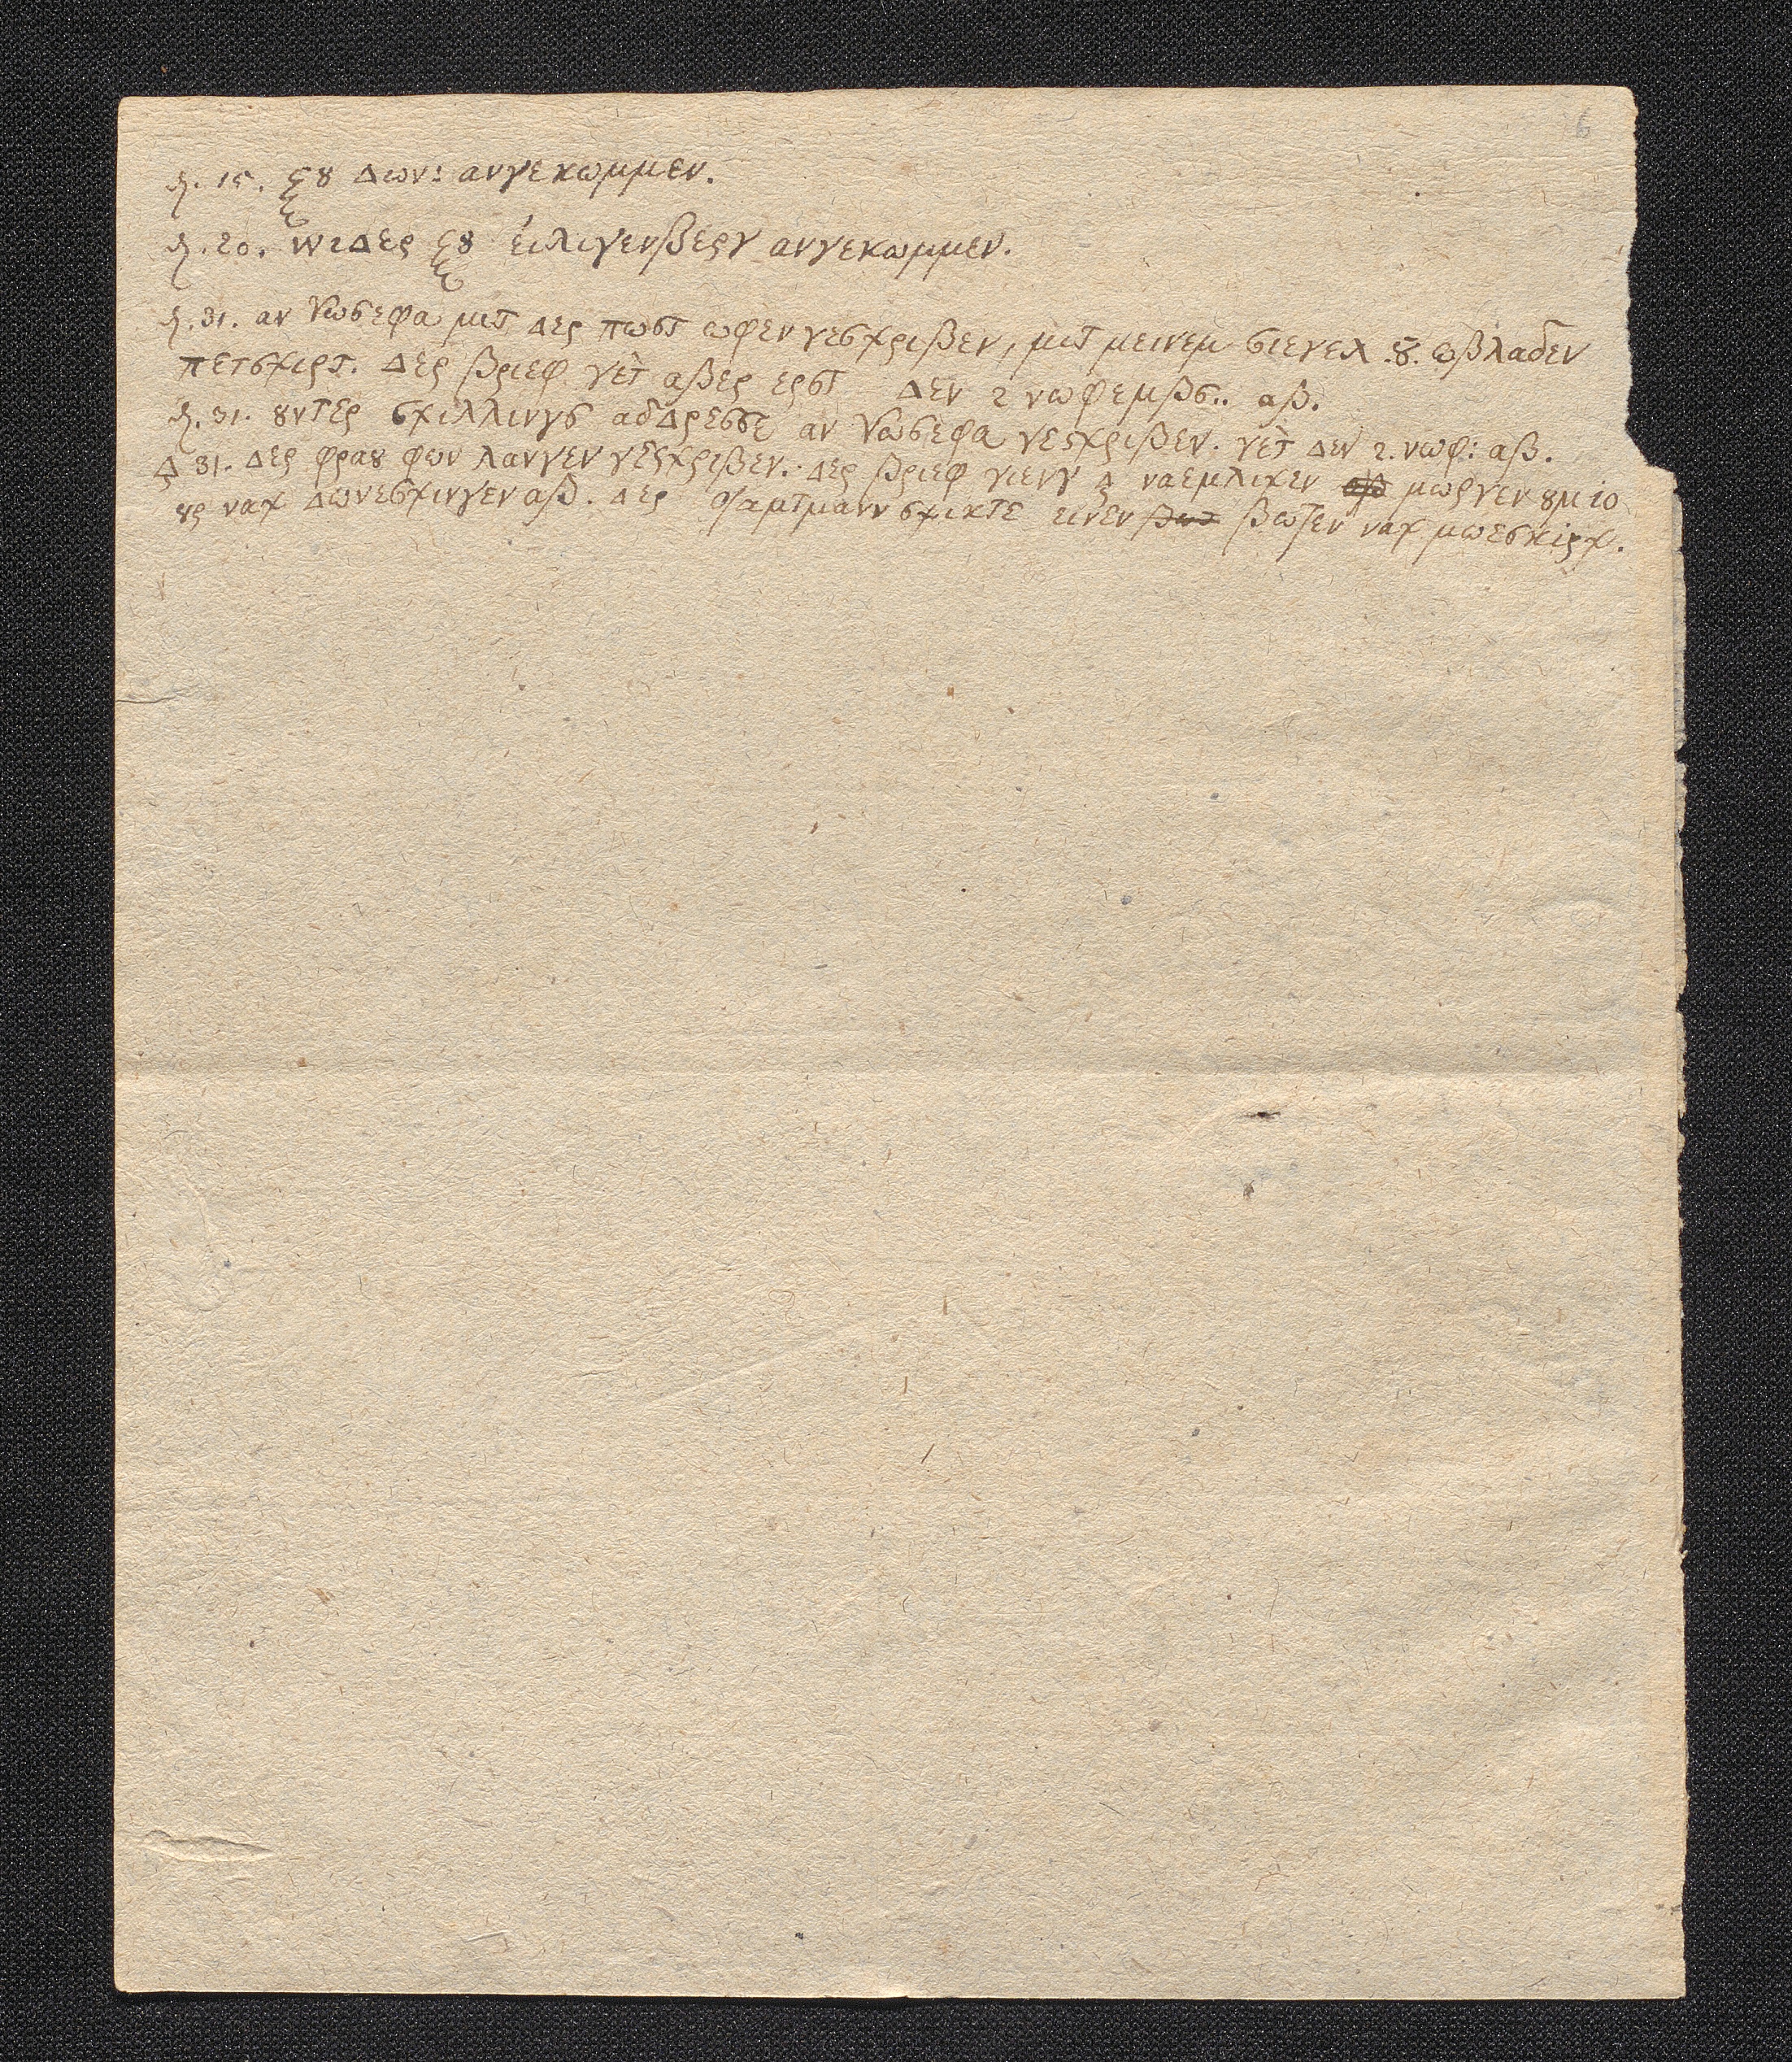 6
δ. 15. ξȣ Δων: ανγεκωμμεν.
δ. 20. Wιδερ ξȣ ἑιλιγενβεργ ανγεκωμμεν.
δ. 31. αν Ιωσεφα μιτ δερ πωστ ωφεν γεσχριβεν, μιτ μεινεμ σιεγελ .ȣ. ωβλαδεν
πετσχιρτ. Δερ βριεφ γετ αβερ ερστ Δεν 2 νωφεμβσ.. αβ.
δ. 31. ȣντερ σχιλλινγσ αδδρεσσε αν Ιωσεφα γεσχριβεν. γετ Δεν 2. νωφ: αβ.
Δ 31. Δερ φραȣ φων λανγεν γεσχριβεν. Δερ βριεφ γιενγ Δ ναεμλιχεν αβ μωργεν ȣμ 10
ȣρ ναχ Δωνεσχινγεν αβ. Δερ ἁμτμανν σχικτε εινεν βωτεν ναχ μωεσκιρχ.